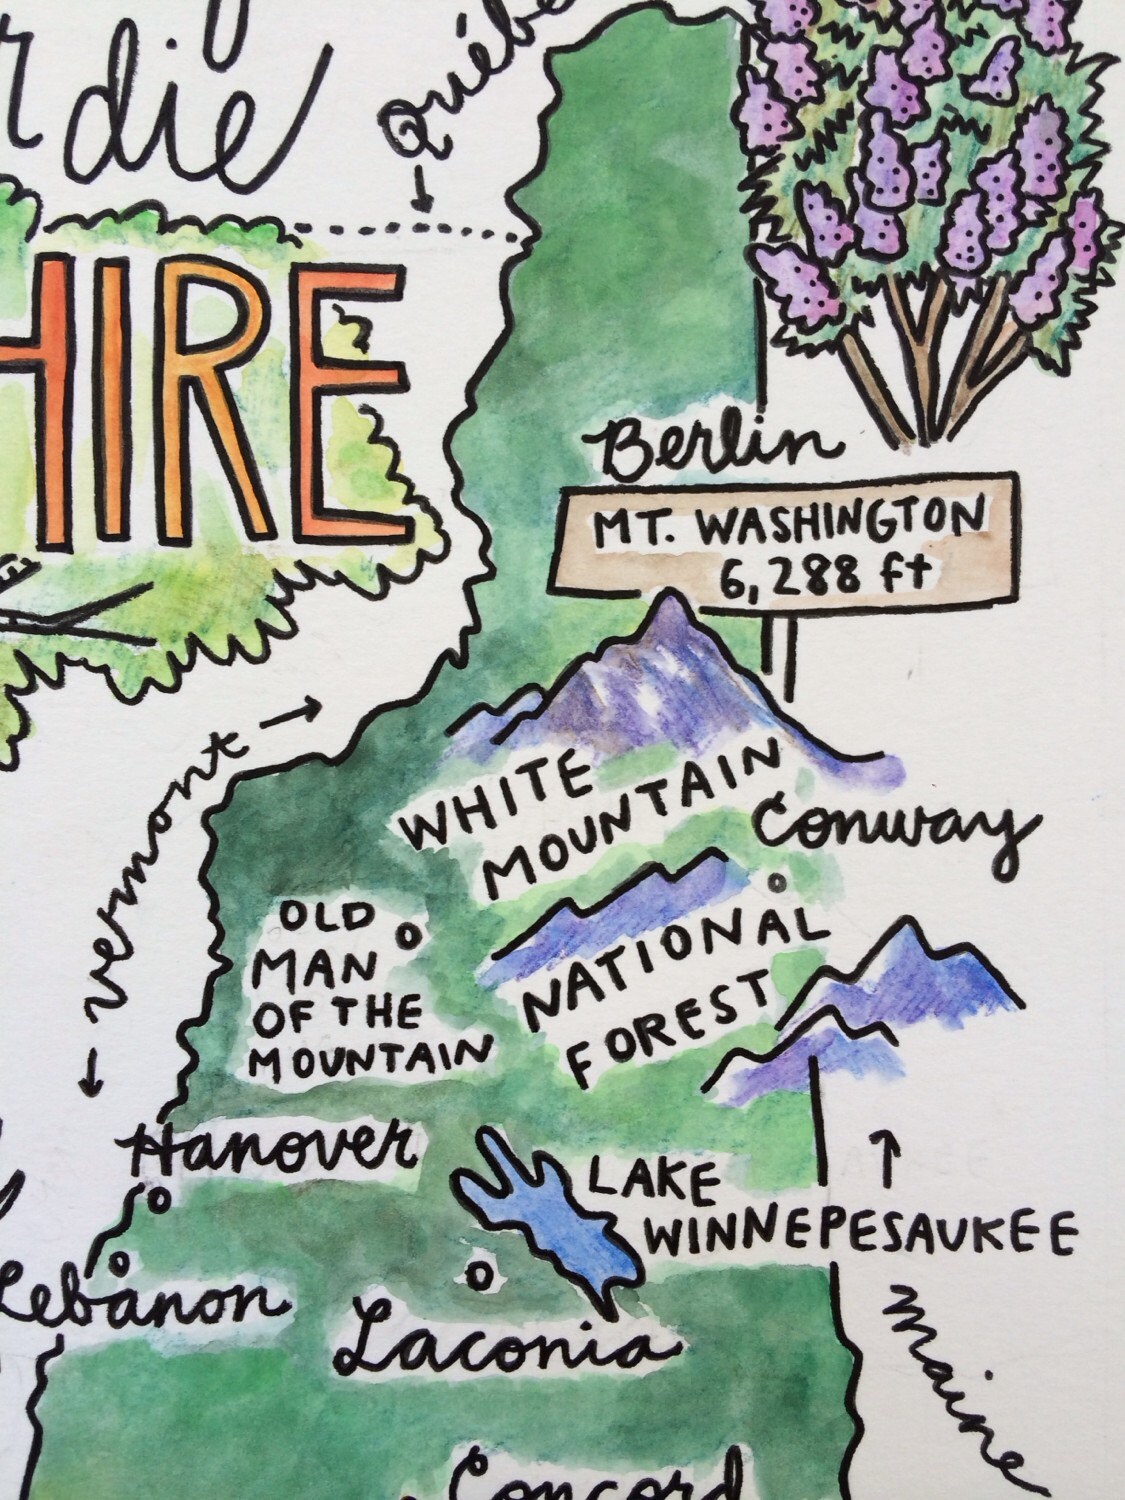 die
Québe
HIRE
Berlin
MT. WASHINGTON
6,288 ft
vermont
WHITE
MOUNTAIN
Conway
NATIONAL
FOREST
OLD
MAN
OF THE
MOUNTAIN
Hanover
LAKE
WINNEPESAUKEE
Lebanon
Laconia
Maine
Concord